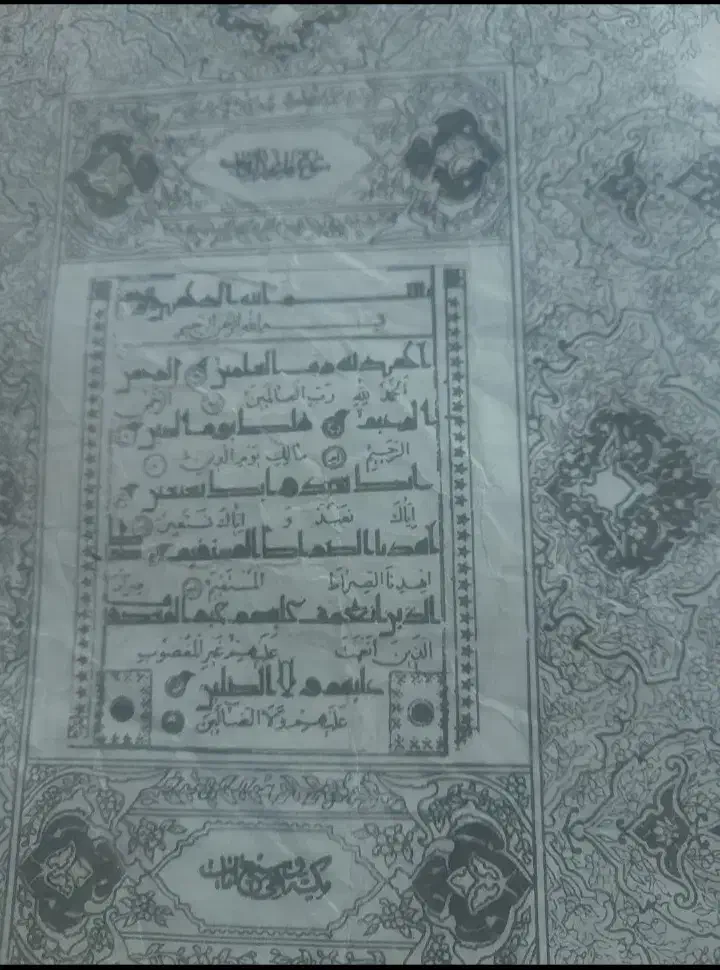 بسم الله الرحمن الرحيم
بسم الله الرحمن الرحيم
الحمد لله رب العلمين الرحمن
الحمد لله رب العالمين الرحمن
الرحيم ملك يوم الدين
الرحيم مالك يوم الدين
اياك نعبد و اياك نستعين
إياك نعبد و إياك نستعين
اهدنا الصراط المستقيم صراط
اهدنا الصراط المستقيم صراط
الذين انعمت عليهم غير المغضوب
الذين انعمت عليهم غير المغضوب
عليهم ولا الضلين
عليهم ولا الضالين
مكية وهي سبع آيات